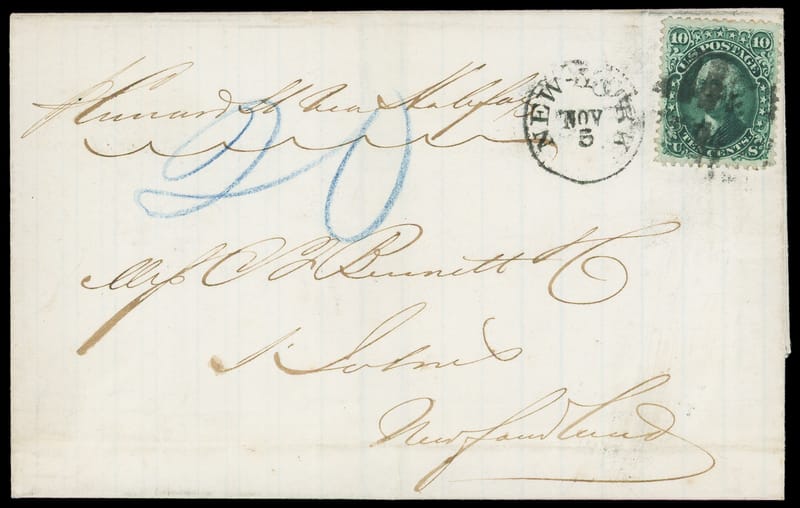 p Cunard St via Halifax
20
NEW-YORK
NOV
5
10 10
U.S. POSTAGE
TEN CENTS
U S
Mess C F Bennett & C
St Johns
Newfoundland